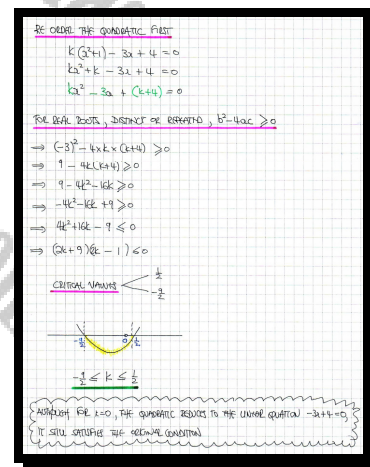 RE ORDER THE QUADRATIC FIRST
k(x²+1) - 3x + 4 = 0
kx² + k - 3x + 4 = 0
kx² - 3x + (k+4) = 0
FOR REAL ROOTS, DISTINCT OR REPEATED, b²-4ac ≥ 0
⇒ (-3)² - 4×k×(k+4) ≥ 0
⇒ 9 - 4k(k+4) ≥ 0
⇒ 9 - 4k² - 16k ≥ 0
⇒ -4k² - 16k + 9 ≥ 0
⇒ 4k² + 16k - 9 ≤ 0
⇒ (2k+9)(2k-1) ≤ 0
CRITICAL VALUES < 1/2
-9/2
-9/2 0 1/2
-9/2 ≤ k ≤ 1/2
ALTHOUGH FOR k=0, THE QUADRATIC REDUCES TO THE LINEAR EQUATION -3x+4=0,
IT STILL SATISFIES THE ORIGINAL CONDITION